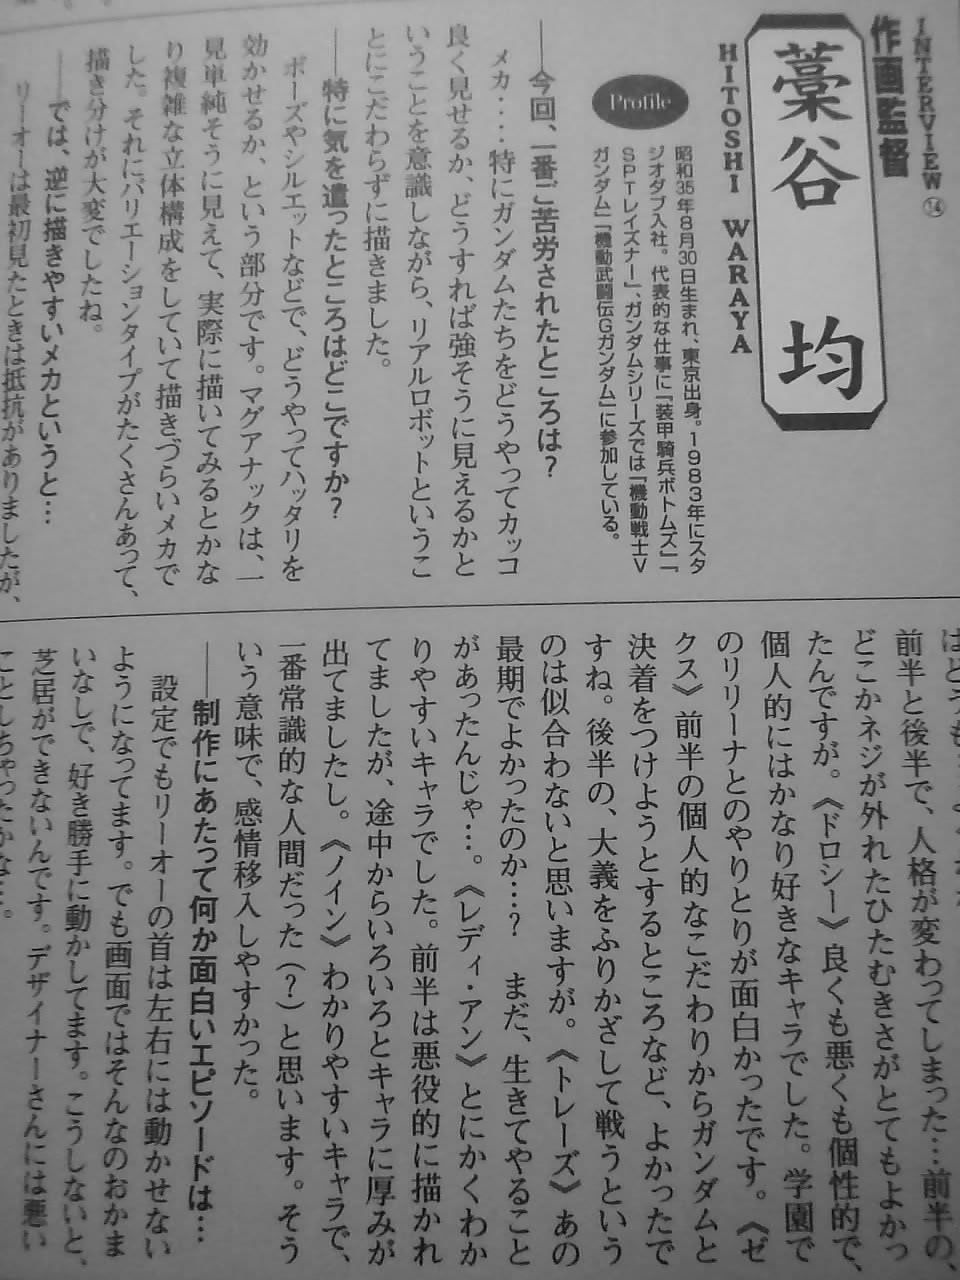 INTERVIEW⑭
作画監督
藁谷 均
HITOSHI WARAYA
Profile
昭和35年8月30日生まれ、東京出身。1983年にスタ
ジオダブ入社。代表的な仕事に『装甲騎兵ボトムズ』『
SPTレイズナー』、ガンダムシリーズでは『機動戦士V
ガンダム』『機動武闘伝Gガンダム』に参加している。
――今回、一番ご苦労されたところは？
メカ‥‥特にガンダムたちをどうやってカッコ
良く見せるか、どうすれば強そうに見えるかと
いうことを意識しながら、リアルロボットというこ
とにこだわらずに描きました。
――特に気を遣ったところはどこですか？
ポーズやシルエットなどで、どうやってハッタリを
効かせるか、という部分です。マグアナックは、一
見単純そうに見えて、実際に描いてみるとかな
り複雑な立体構成をしていて描きづらいメカで
した。それにバリエーションタイプがたくさんあって、
描き分けが大変でしたね。
――では、逆に描きやすいメカというと…
リーオーは最初見たときは抵抗がありましたが、
前半と後半で、人格が変わってしまった…前半の、
どこかネジが外れたひたむきさがとてもよかっ
たんですが。《ドロシー》良くも悪くも個性的で、
個人的にはかなり好きなキャラでした。学園で
のリリーナとのやりとりが面白かったです。《ゼ
クス》前半の個人的なこだわりからガンダムと
決着をつけようとするところなど、よかったで
すね。後半の、大義をふりかざして戦うという
のは似合わないと思いますが。《トレーズ》あの
最期でよかったのか…？ まだ、生きてやること
があったんじゃ…。《レディ・アン》とにかくわか
りやすいキャラでした。前半は悪役的に描かれ
てましたが、途中からいろいろとキャラに厚みが
出てましたし。《ノイン》わかりやすいキャラで、
一番常識的な人間だった（？）と思います。そう
いう意味で、感情移入しやすかった。
――制作にあたって何か面白いエピソードは…
設定でもリーオーの首は左右には動かせない
ようになってます。でも画面ではそんなのおかま
いなしで、好き勝手に動かしてます。こうしないと、
芝居ができないんです。デザイナーさんには悪い
ことしちゃったかな…。